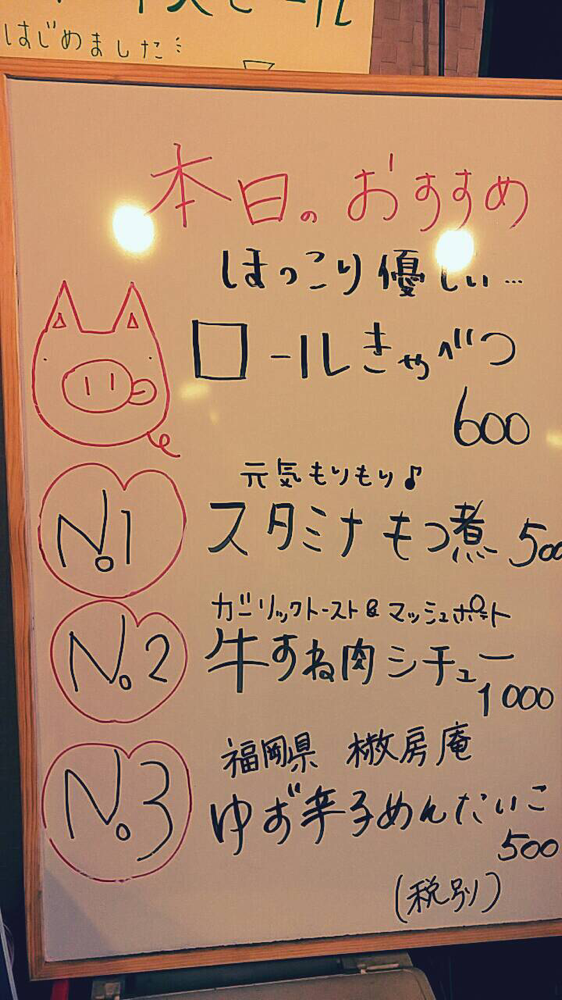 はじめました
本日のおすすめ
ほっこり優しい…
ロールきゃべつ
600
元気もりもり♪
No.1
スタミナもつ煮 500
ガーリックトースト&マッシュポテト
No.2
牛すね肉シチュー
1000
福岡県 椒房庵
No.3
ゆず辛子めんたいこ
500
(税別)